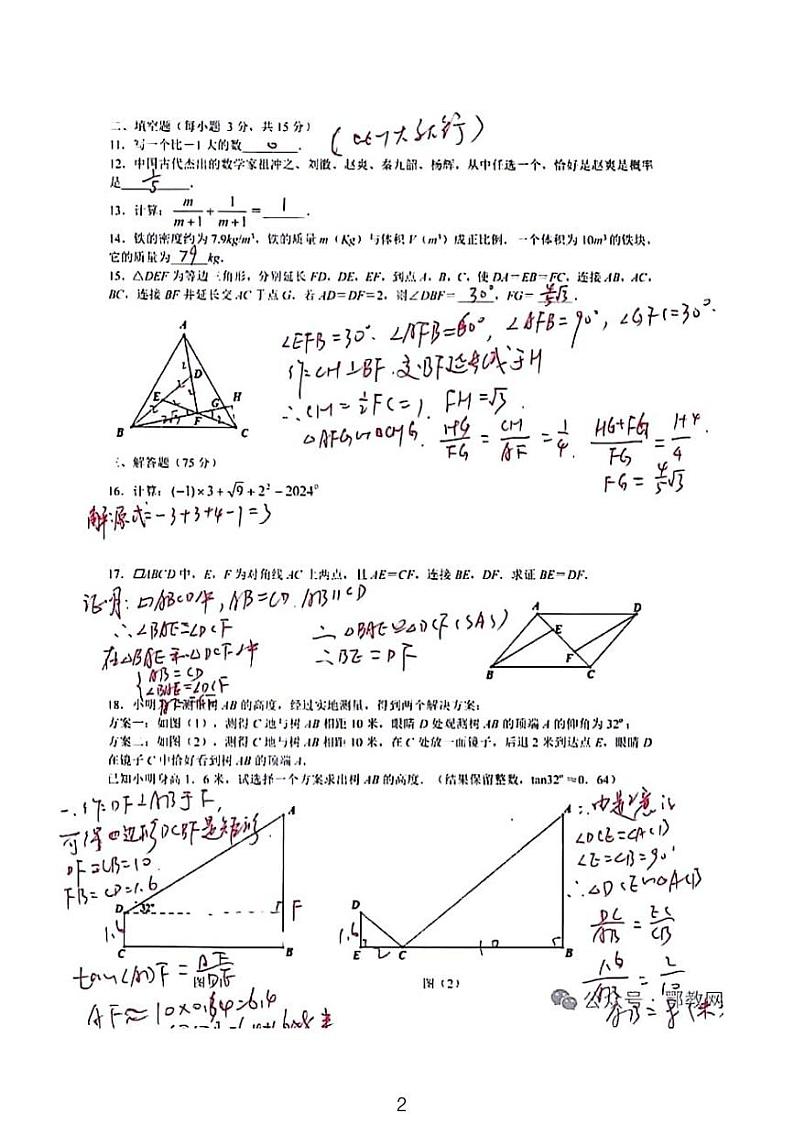 二、填空题（每小题 3 分，共 15 分）
11．写一个比－1 大的数 0 ．
12．中国古代杰出的数学家祖冲之、刘徽、赵爽、秦九韶、杨辉，从中任选一个，恰好是赵爽是概率
是 1/5 ．
13．计算：m/(m+1)+1/(m+1)= 1 ．
14．铁的密度约为 7.9kg/m³，铁的质量 m（Kg）与体积 V（m³）成正比例．一个体积为 10m³ 的铁块，
它的质量为 79 kg．
15．△DEF 为等边三角形，分别延长 FD，DE，EF，到点 A，B，C，使 DA=EB=FC，连接 AB，AC，
BC，连接 BF 并延长交 AC 于点 G．若 AD=DF=2，则∠DBF= 30° ，FG= 4/5√3 ．
∠EFB=30°．∠AFB=60°，∠AFB=90°，∠GFC=30°．
作CH⊥BF．交BF延长线于H
∴CH=1/2FC=1．FH=√3．
△AFG∽△CHG． HG/FG=CH/AF=1/4． (HG+FG)/FG=(1+4)/4．
FG=4/5√3
A
D
E
G
H
F
B
C
三、解答题（75 分）
16．计算：(−1)×3+√9+2²−2024⁰
解：原式=-3+3+4-1=3
17．▱ABCD 中，E，F 为对角线 AC 上两点，且 AE=CF，连接 BE，DF．求证 BE=DF．
证明：▱ABCD中，AB=CD．AB∥CD
∴∠BAE=∠DCF
在△BAE和△DCF中
AB=CD
∠BAE=∠DCF
∴△BAE≌△DCF(SAS)
∴BE=DF
A
D
E
F
B
C
18．小明 测量树 AB 的高度，经过实地测量，得到两个解决方案：
方案一：如图（1），测得 C 地与树 AB 相距 10 米，眼睛 D 处观测树 AB 的顶端 A 的仰角为 32°；
方案二：如图（2），测得 C 地与树 AB 相距 10 米，在 C 处放一面镜子，后退 2 米到达点 E，眼睛 D
在镜子 C 中恰好看到树 AB 的顶端 A．
已知小明身高 1．6 米，试选择一个方案求出树 AB 的高度．（结果保留整数，tan32°≈0．64）
一、作DF⊥AB于F，
可得四边形DCBF是矩形．
DF=CB=10．
FB=CD=1.6
A
D
32°
F
1.6
C
B
tan∠ADF=AF/DF
AF≈10×0.64=6.4
A
D
1.6
E
2
C
10
B
图（2）
二：由题意得
∠DCE=∠ACB
∠E=∠B=90°
∴△DCE∽△ACB
DE/AB=EC/CB
1.6/AB=2/10
AB=8（米）
公众号·鄂教网
2